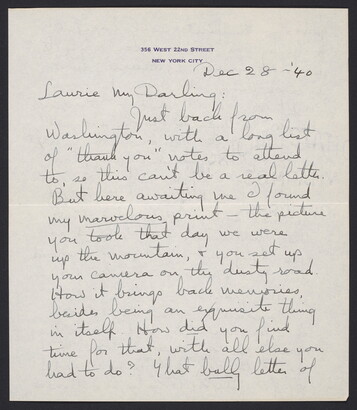 356 WEST 22ND STREET
NEW YORK CITY
Dec 28 - '40
Laurie My Darling:
Just back from
Washington, with a long list
of "thank you" notes to attend
to, so this can't be a real letter.
But here awaiting me I found
my marvelous print — the picture
you took that day we were
up the mountain, & you set up
your camera on the dusty road.
How it brings back memories,
besides being an exquisite thing
in itself. How did you find
time for that, with all else you
had to do? That letter of